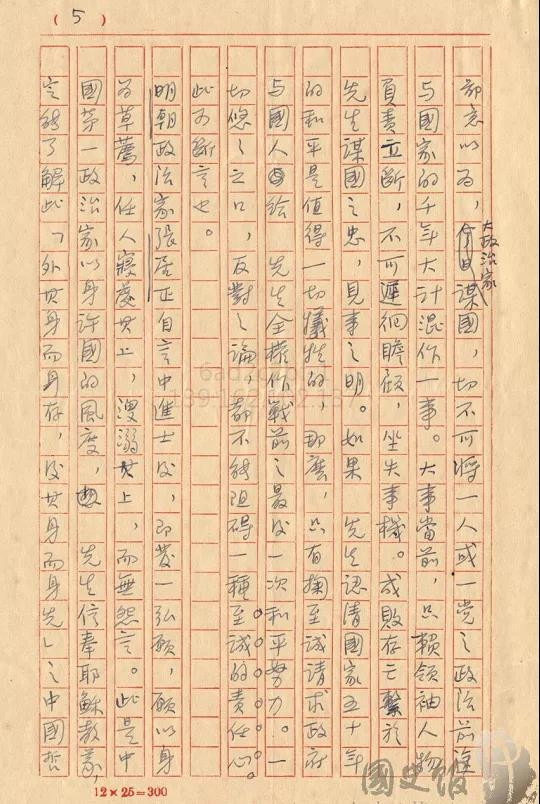 (5)
鄙意以为，大政治家谋國，切不可將一人或一党之政治前途
与國家的千年大计混作一事。大事當前，只賴領袖人物
負責立断，不可遲徊瞻顾，坐失事機。成敗存亡繫於
先生謀國之忠，見事之明。如果　先生認清國家五十年
的和平是值得一切犧牲的，那麽，只有掬至诚请求政府
与國人给　先生全權作戰前之最後一次和平努力。一
切悠々之口，反對之論，都不能阻碍一種至诚的責任心。
此可断言也。
明朝政治家張居正自言中進士後，即發一弘願，願以身
为草薦，任人寢處其上，溲溺其上，而無怨言。此是中
國第一政治家以身许國的風度，　先生信奉耶穌教義，
定能了解此「外其身而身存，後其身而身先」之中國哲
12×25=300
國史館